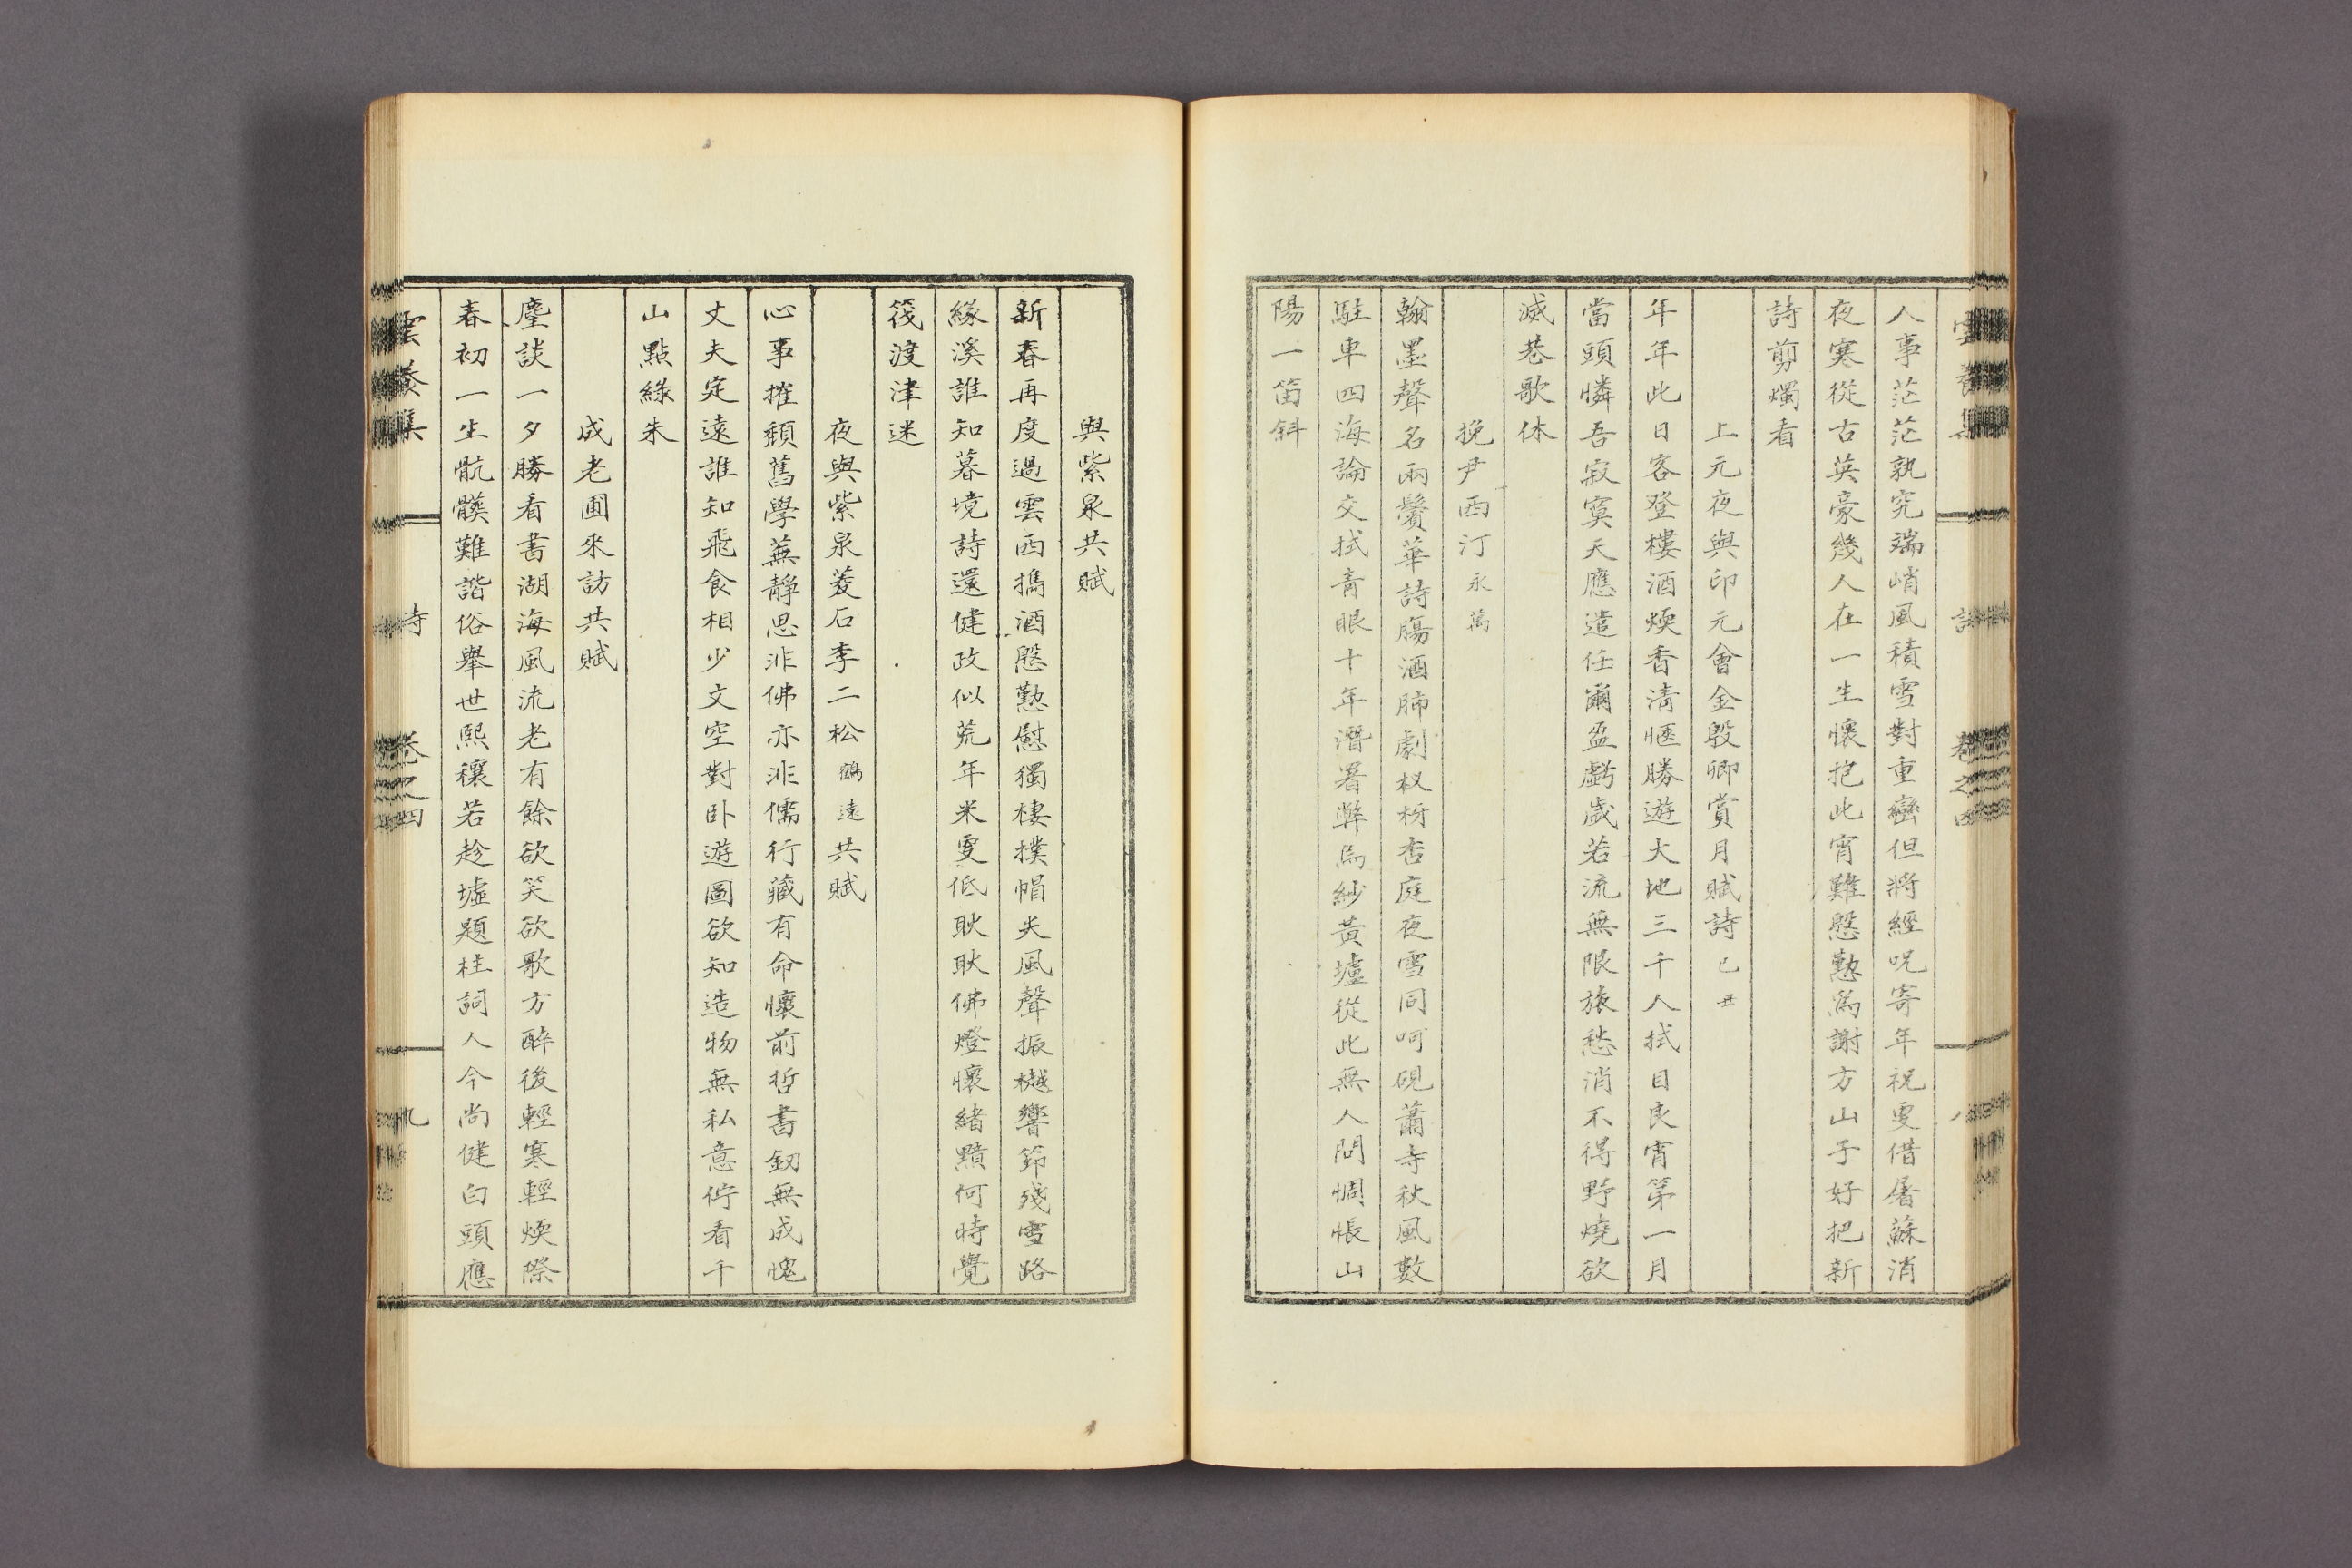 人事茫茫孰究端峭風積雪對重巒但將經呪寄年祝更借屠蘇消
夜寒從古英豪幾人在一生懷抱此宵難慇懃爲謝方山子好把新
詩剪燭看
上元夜與印元會金殷卿賞月賦詩 己丑
年年此日客登樓酒煖香淸愜勝遊大地三千人拭目良宵第一月
當頭憐吾寂寞天應遣任爾盈虧歲若流無限旅愁消不得野燒欲
滅巷歌休
挽尹西汀 永萬
翰墨聲名兩鬢華詩腸酒肺劇杈枒杏庭夜雪同呵硯蕭寺秋風數
駐車四海論交拭靑眼十年潛署弊烏紗黃壚從此無人問惆悵山
陽一笛斜
雲養集 詩 卷之四 八
與紫泉共賦
新春再度過雲西擕酒慇懃慰獨棲撲帽尖風聲振樾響筇殘雪路
緣溪誰知暮境詩還健政似荒年米更低耿耿佛燈懷緖黯何時覺
筏渡津迷
夜與紫泉菱石李二松 鶴遠 共賦
心事摧頹舊學蕪靜思非佛亦非儒行藏有命懷前哲書劒無成愧
丈夫定遠誰知飛食相少文空對臥遊圖欲知造物無私意佇看千
山點綠朱
成老圃來訪共賦
麈談一夕勝看書湖海風流老有餘欲笑欲歌方醉後輕寒輕煖際
春初一生骯髒難諧俗擧世熙穰若趁墟題柱詞人今尙健白頭應
雲養集 詩 卷之四 九